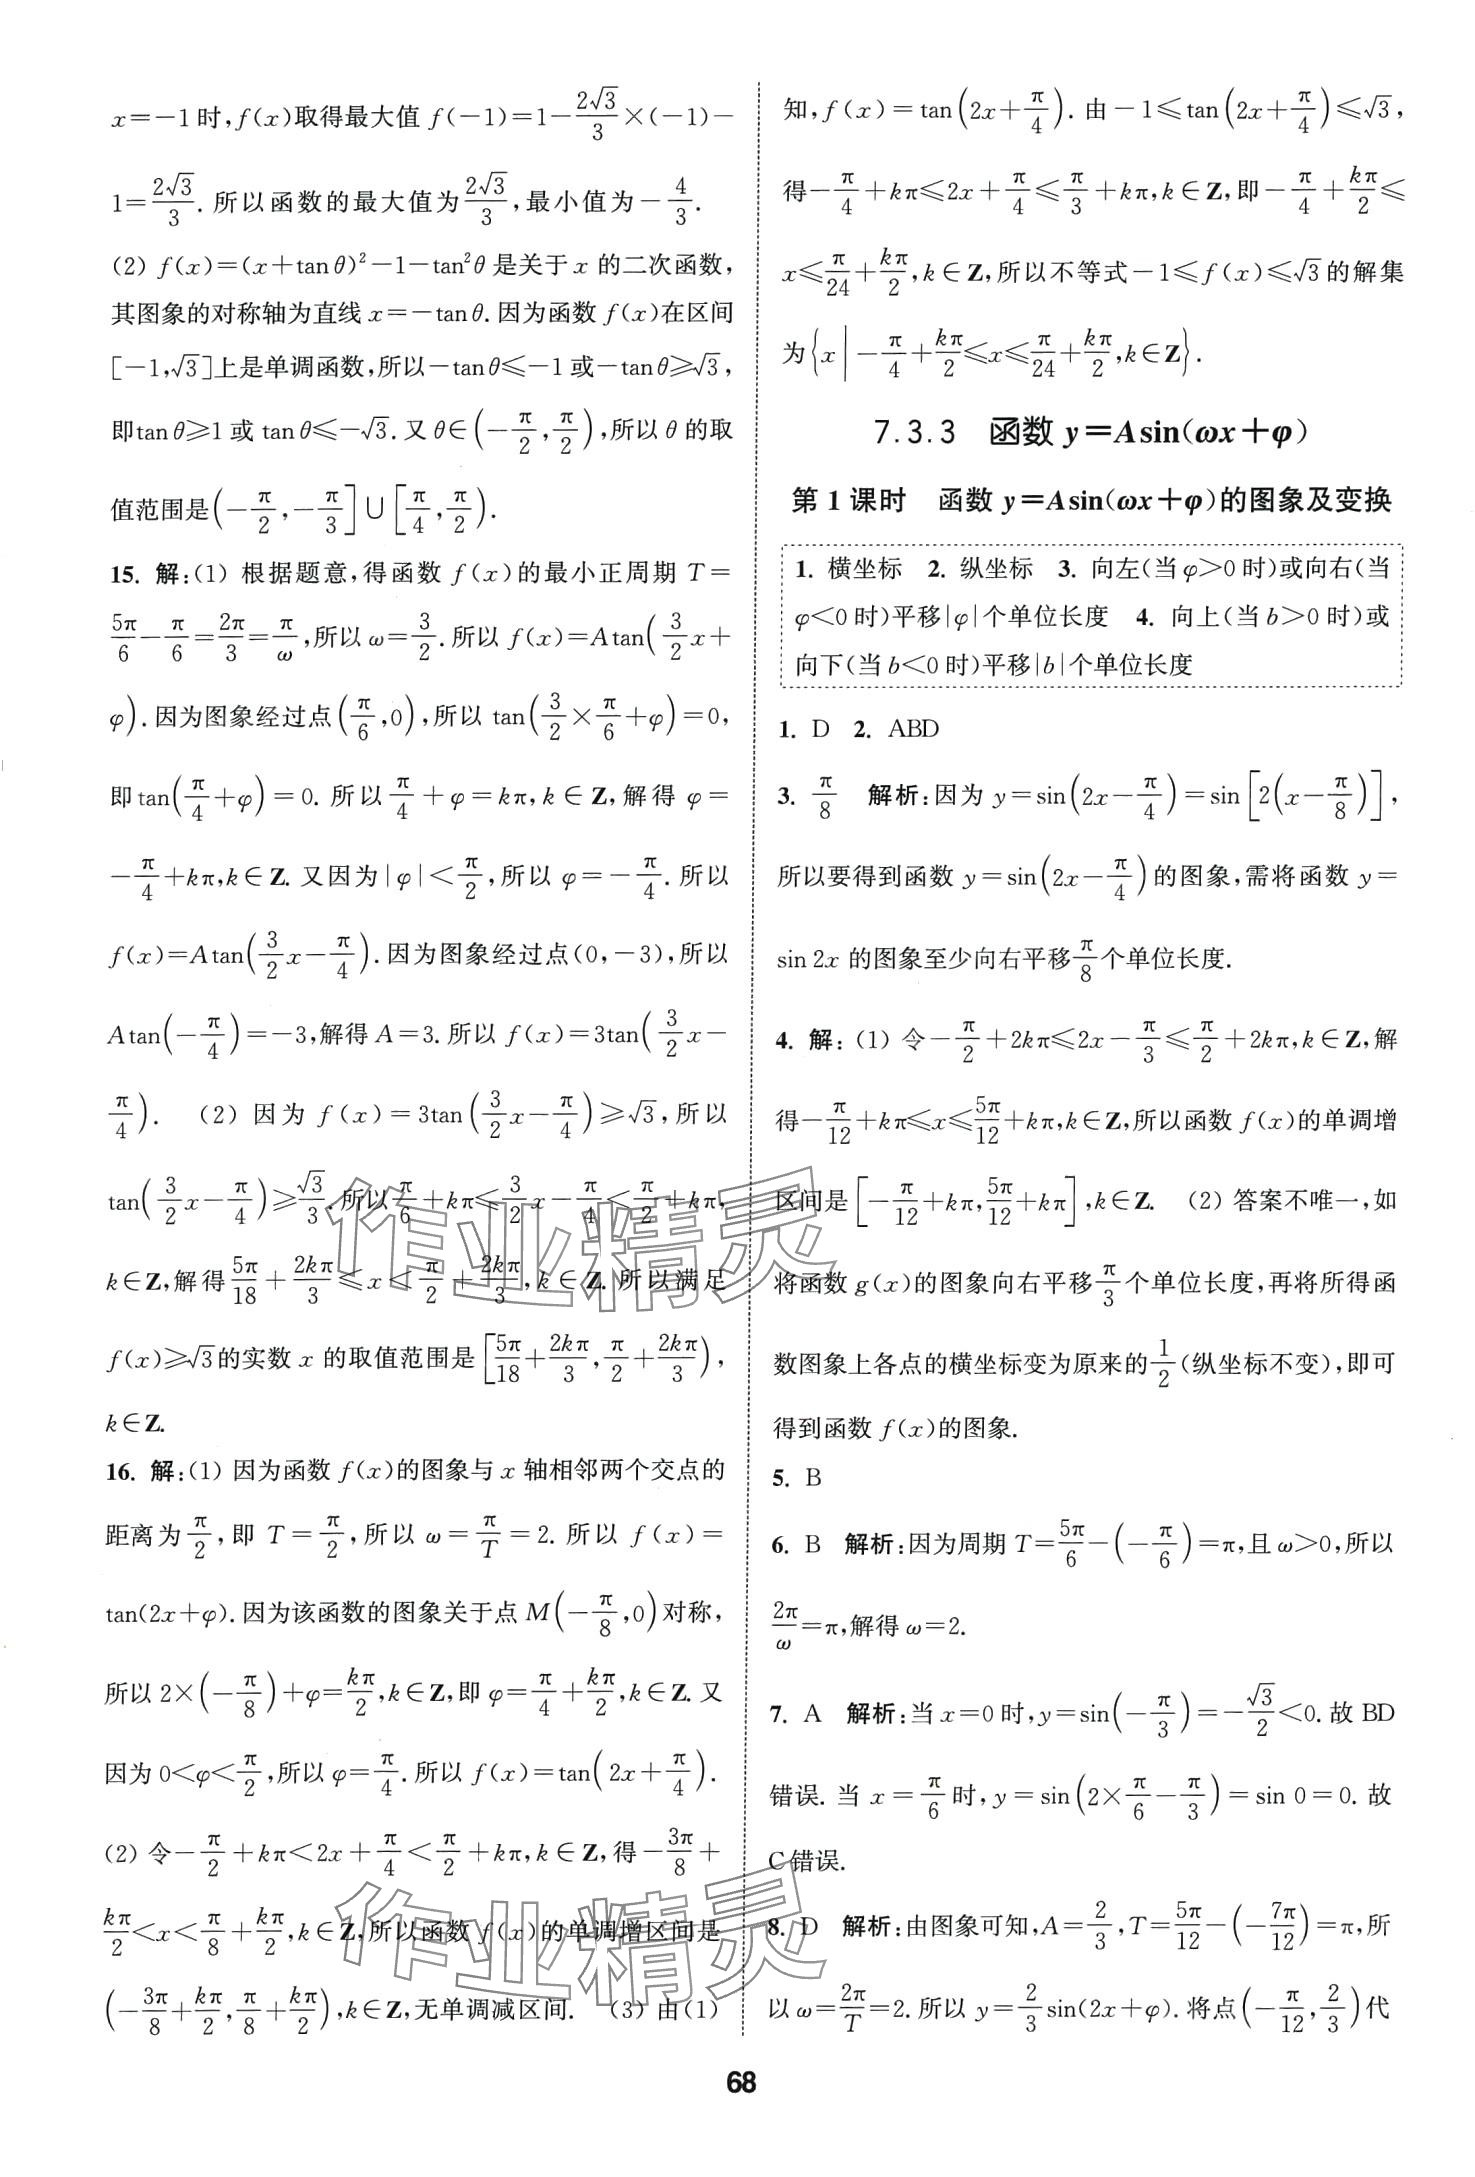 x=-1时,f(x)取得最大值 f(-1)=1-\frac{2\sqrt{3}}{3}×(-1)-
1=\frac{2\sqrt{3}}{3}.所以函数的最大值为\frac{2\sqrt{3}}{3},最小值为-\frac{4}{3}.
(2) f(x)=(x+tanθ)²-1-tan²θ是关于x的二次函数,
其图象的对称轴为直线x=-tanθ.因为函数f(x)在区间
[-1,\sqrt{3}]上是单调函数,所以-tanθ≤-1或-tanθ≥\sqrt{3},
即tanθ≥1或tanθ≤-\sqrt{3}.又θ∈(-\frac{π}{2},\frac{π}{2}),所以θ的取
值范围是(-\frac{π}{2},-\frac{π}{3}]∪[\frac{π}{4},\frac{π}{2}).
15. 解:(1) 根据题意,得函数f(x)的最小正周期T=
\frac{5π}{6}-\frac{π}{6}=\frac{2π}{3}=\frac{π}{ω},所以ω=\frac{3}{2}.所以f(x)=Atan(\frac{3}{2}x+
φ).因为图象经过点(\frac{π}{6},0),所以tan(\frac{3}{2}×\frac{π}{6}+φ)=0,
即tan(\frac{π}{4}+φ)=0.所以\frac{π}{4}+φ=kπ,k∈Z,解得φ=
-\frac{π}{4}+kπ,k∈Z.又因为|φ|<\frac{π}{2},所以φ=-\frac{π}{4}.所以
f(x)=Atan(\frac{3}{2}x-\frac{π}{4}).因为图象经过点(0,-3),所以
Atan(-\frac{π}{4})=-3,解得A=3.所以f(x)=3tan(\frac{3}{2}x-
\frac{π}{4}). (2) 因为f(x)=3tan(\frac{3}{2}x-\frac{π}{4})≥\sqrt{3},所以
tan(\frac{3}{2}x-\frac{π}{4})≥\frac{\sqrt{3}}{3}.所以\frac{π}{6}+kπ≤\frac{3}{2}x-\frac{π}{4}<\frac{π}{2}+kπ,
k∈Z,解得\frac{5π}{18}+\frac{2kπ}{3}≤x<\frac{π}{2}+\frac{2kπ}{3},k∈Z.所以满足
f(x)≥\sqrt{3}的实数x的取值范围是[\frac{5π}{18}+\frac{2kπ}{3},\frac{π}{2}+\frac{2kπ}{3}),
k∈Z.
16. 解:(1) 因为函数f(x)的图象与x轴相邻两个交点的
距离为\frac{π}{2},即T=\frac{π}{2},所以ω=\frac{π}{T}=2.所以f(x)=
tan(2x+φ).因为该函数的图象关于点M(-\frac{π}{8},0)对称,
所以2×(-\frac{π}{8})+φ=\frac{kπ}{2},k∈Z,即φ=\frac{π}{4}+\frac{kπ}{2},k∈Z.又
因为0<φ<\frac{π}{2},所以φ=\frac{π}{4}.所以f(x)=tan(2x+\frac{π}{4}).
(2) 令-\frac{π}{2}+kπ<2x+\frac{π}{4}<\frac{π}{2}+kπ,k∈Z,得-\frac{3π}{8}+
\frac{kπ}{2}<x<\frac{π}{8}+\frac{kπ}{2},k∈Z,所以函数f(x)的单调增区间是
(-\frac{3π}{8}+\frac{kπ}{2},\frac{π}{8}+\frac{kπ}{2}),k∈Z,无单调减区间. (3) 由(1)
知,f(x)=tan(2x+\frac{π}{4}).由-1≤tan(2x+\frac{π}{4})≤\sqrt{3},
得-\frac{π}{4}+kπ≤2x+\frac{π}{4}≤\frac{π}{3}+kπ,k∈Z,即-\frac{π}{4}+\frac{kπ}{2}≤
x≤\frac{π}{24}+\frac{kπ}{2},k∈Z,所以不等式-1≤f(x)≤\sqrt{3}的解集
为{x|-\frac{π}{4}+\frac{kπ}{2}≤x≤\frac{π}{24}+\frac{kπ}{2},k∈Z}.
7.3.3 函数y=Asin(ωx+φ)
第1课时 函数y=Asin(ωx+φ)的图象及变换
1. 横坐标 2. 纵坐标 3. 向左(当φ>0时)或向右(当
φ<0时)平移|φ|个单位长度 4. 向上(当b>0时)或
向下(当b<0时)平移|b|个单位长度
1. D 2. ABD
3. \frac{π}{8} 解析:因为y=sin(2x-\frac{π}{4})=sin[2(x-\frac{π}{8})],
所以要得到函数y=sin(2x-\frac{π}{4})的图象,需将函数y=
sin 2x的图象至少向右平移\frac{π}{8}个单位长度.
4. 解:(1) 令-\frac{π}{2}+2kπ≤2x-\frac{π}{3}≤\frac{π}{2}+2kπ,k∈Z,解
得-\frac{π}{12}+kπ≤x≤\frac{5π}{12}+kπ,k∈Z,所以函数f(x)的单调增
区间是[-\frac{π}{12}+kπ,\frac{5π}{12}+kπ],k∈Z. (2) 答案不唯一,如
将函数g(x)的图象向右平移\frac{π}{3}个单位长度,再将所得函
数图象上各点的横坐标变为原来的\frac{1}{2}(纵坐标不变),即可
得到函数f(x)的图象.
5. B
6. B 解析:因为周期T=\frac{5π}{6}-(-\frac{π}{6})=π,且ω>0,所以
\frac{2π}{ω}=π,解得ω=2.
7. A 解析:当x=0时,y=sin(-\frac{π}{3})=-\frac{\sqrt{3}}{2}<0.故BD
错误.当x=\frac{π}{6}时,y=sin(2×\frac{π}{6}-\frac{π}{3})=sin 0=0.故
C错误.
8. D 解析:由图象可知,A=\frac{2}{3},T=\frac{5π}{12}-(-\frac{7π}{12})=π,所
以ω=\frac{2π}{T}=2.所以y=\frac{2}{3}sin(2x+φ).将点(-\frac{π}{12},\frac{2}{3})代
68
作业精灵
作业精灵